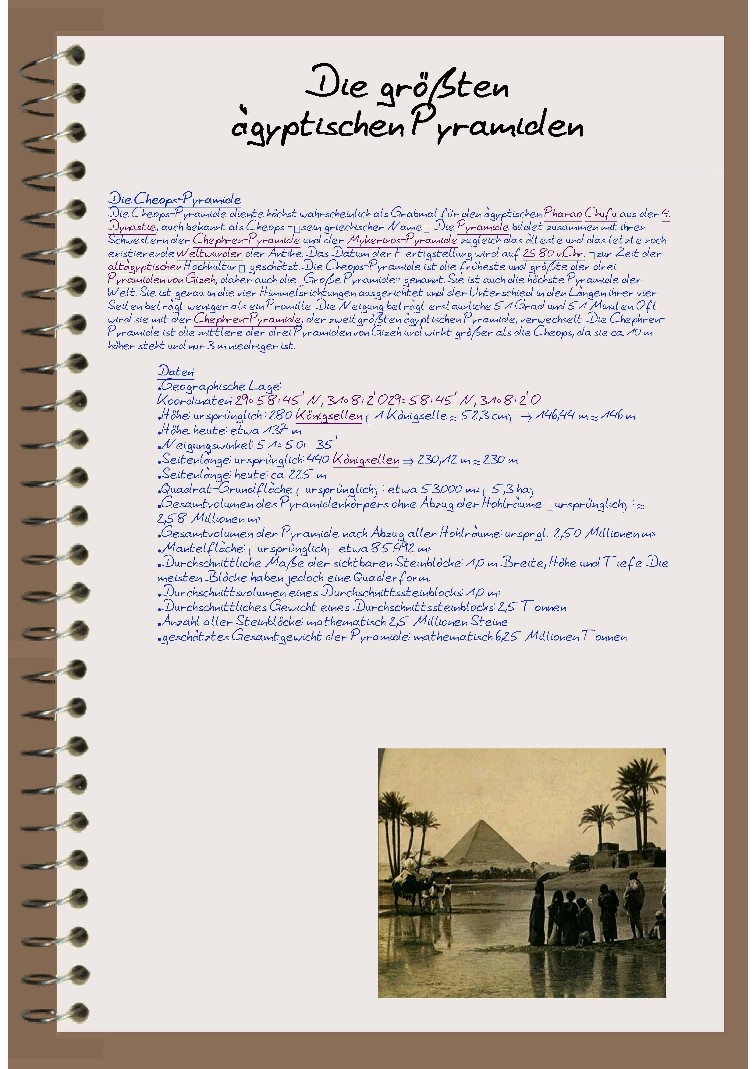 Die größten
ägyptischen Pyramiden
Die Cheops-Pyramide
Die Cheops-Pyramide diente höchst wahrscheinlich als Grabmal für den ägyptischen Pharao Chufu aus der 4.
Dynastie, auch bekannt als Cheops - sein griechischer Name _ Die Pyramide bildet zusammen mit ihren
Schwestern der Chephren-Pyramide und der Mykerinos-Pyramide zugleich das älteste und das letzte noch
existierende Weltwunder der Antike. Das Datum der Fertigstellung wird auf 2580 v.Chr. zur Zeit der
altägyptischen Hochkultur geschätzt. Die Cheops-Pyramide ist die früheste und größte der drei
Pyramiden von Gizeh, daher auch die Große Pyramide genannt. Sie ist auch die höchste Pyramide der
Welt. Sie ist genau in die vier Himmelsrichtungen ausgerichtet und der Unterschied in den Längen ihrer vier
Seiten beträgt weniger als ein Promille. Die Neigung beträgt erstaunliche 51 Grad und 51 Minuten. Oft
wird sie mit der Chephren-Pyramide, der zweitgrößten ägyptischen Pyramide, verwechselt. Die Chephren-
Pyramide ist die mittlere der drei Pyramiden von Gizeh und wirkt größer als die Cheops, da sie ca 10 m
höher steht und nur 3 m niedriger ist.
Daten
•Geographische Lage:
Koordinaten: 29° 58' 45" N, 31° 8' 2" O29° 58' 45" N, 31° 8' 2" O
•Höhe: ursprünglich: 280 Königsellen; 1 Königselle ≈ 52,3 cm; → 146,44 m ≈ 146 m
•Höhe heute: etwa 137 m
•Neigungswinkel: 51° 50' 35"
•Seitenlänge: ursprünglich: 440 Königsellen ⇒ 230,12 m ≈ 230 m
•Seitenlänge: heute: ca 225 m
•Quadrat-Grundfläche ( ursprünglich) : etwa 53000 m² ( 5,3 ha)
•Gesamtvolumen des Pyramidenkörpers ohne Abzug der Hohlräume _ ursprünglich) : ≈
2,58 Millionen m³
•Gesamtvolumen der Pyramide nach Abzug aller Hohlräume: ursprgl. 2,50 Millionen m³
•Mantelfläche: ( ursprünglich) etwa 85492 m²
•Durchschnittliche Maße der sichtbaren Steinblöcke: 1,0 m Breite, Höhe und Tiefe. Die
meisten Blöcke haben jedoch eine Quaderform.
•Durchschnittsvolumen eines Durchschnittssteinblocks: 1,0 m³
•Durchschnittliches Gewicht eines Durchschnittssteinblocks: 2,5 Tonnen
•Anzahl aller Steinblöcke: mathematisch 2,5 Millionen Steine
•geschätztes Gesamtgewicht der Pyramide: mathematisch 6,25 Millionen Tonnen